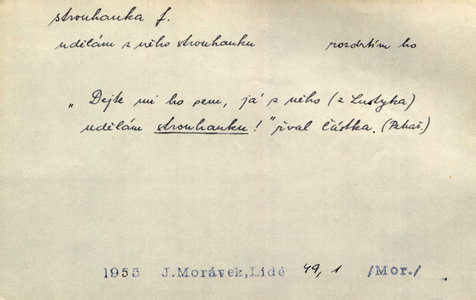 strouhanka f.
udělám z něho strouhanku rozdrtím ho
„Dejte mi ho sem, já z něho (z Lustyka)
udělám strouhanku!" řval částka. (Pekař.)
1955 J.Morávek,Lidé 49,1 /Mor./